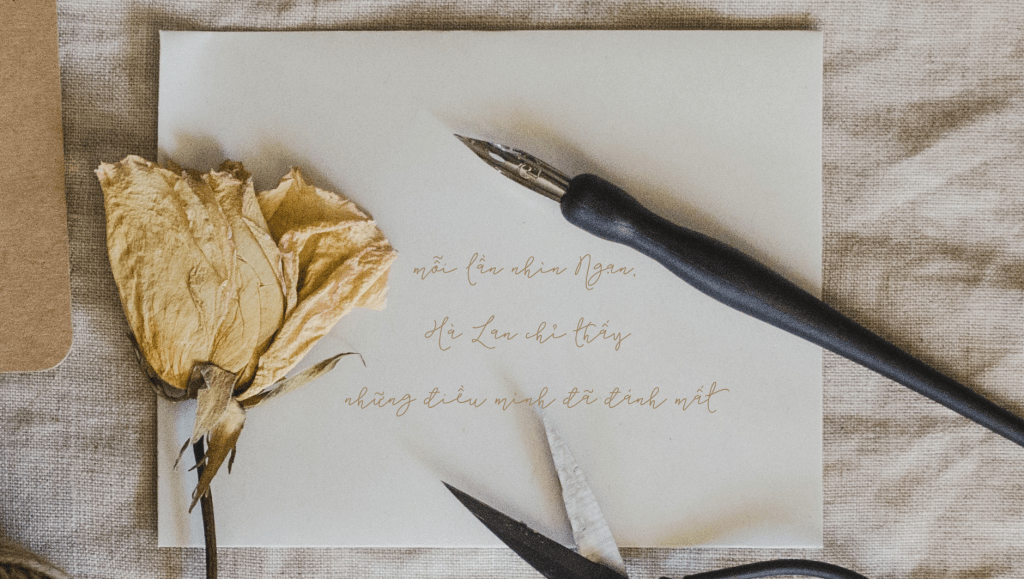 mỗi lần nhìn Ngạn,
Hà Lan chỉ thấy
những điều mình đã đánh mất